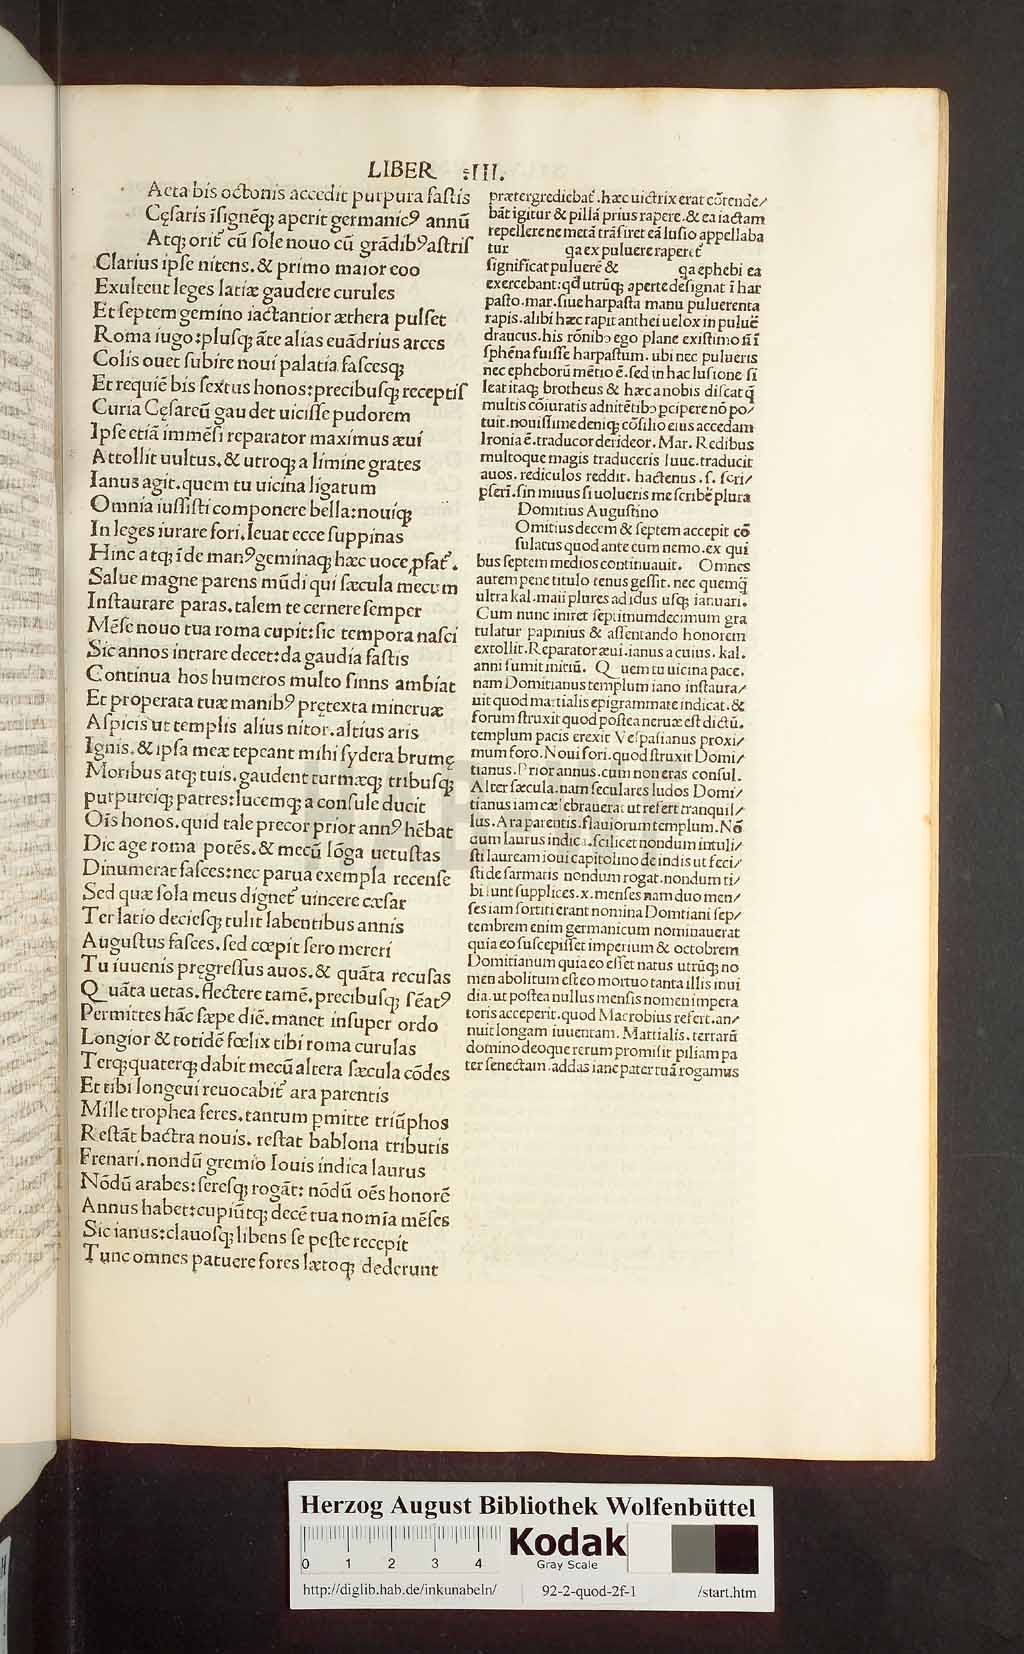 LIBER .III.
Acta bis octonis accedit purpura fastis
Cęsaris īsignēq; aperit germanicꝰ annū
Atq; orit᷑ cū sole nouo cū grādibꝰ astris
Clarius ipse nitens. & primo maior eoo
Exultent leges latiæ gaudere curules
Et septem gemino iactantior æthera pulset
Roma iugo: plusq; āte alias euādrius arces
Colis ouet subire noui palatia fascesq;
Et requiē bis sextus honos: precibusq; receptis
Curia Cęsareū gaudet uicisse pudorem
Ipse etiā immēsi reparator maximus æui
Attollit uultus. & utroq; a limine grates
Ianus agit. quem tu uicina ligatum
Omnia iussisti componere bella: nouiq;
In leges iurare fori. leuat ecce suppinas
Hinc atq; īde manꝰ geminaq; hæc uoce ꝓfat᷑.
Salue magne parens mūdi qui sæcula mecum
Instaurare paras. talem te cernere semper
Mēse nouo tua roma cupit: sic tempora nasci
Sic annos intrare decet: da gaudia fastis
Continua hos humeros multo sinns ambiat
Et properata tuæ manibꝰ prętexta mineruæ
Aspicis ut templis alius nitor. altius aris
Ignis. & ipsa meæ tepeant mihi sydera brumę
Moribus atq; tuis. gaudent turmæq; tribusq;
purpureiq; patres: lucemq; a consule ducit
Oīs honos. quid tale precor prior annꝰ hēbat
Dic age roma potēs. & mecū lōga uetustas
Dinumerat fasces: nec parua exempla recense
Sed quæ sola meus dignet᷑ uincere cæsar
Ter latio deciesq; tulit labentibus annis
Augustus fasces. sed cœpit sero mereri
Tu iuuenis pręgressus auos. & quāta recusas
Quāta uetas. flectere tamē. precibusq; sēatꝰ
Permittes hāc sæpe diē. manet insuper ordo
Longior & totidē fœlix tibi roma curulas
Terq; quaterq; dabit mecū altera sæcula cōdes
Et tibi longeui reuocabit᷑ ara parentis
Mille trophea feres. tantum ꝑmitte triūphos
Restāt bactra nouis. restat bablona tributis
Frenari. nondū gremio Iouis indica laurus
Nōdū arabes: seresq; rogāt: nōdū oēs honorē
Annus habet: cupiūtq; decē tua nomīa mēses
Sic ianus: clauosq; libens se peste recepit
Tunc omnes patuere fores lætoq; dederunt
prætergrediebat᷑. hæc uictrix erat cōtende/
bāt igitur & pillā prius rapere. & ea iactam
repellere ne metā trāsiret eā lusio appellaba
tur qa ex puluere raperet᷑
significat puluerē & qa ephebi ea
exercebant: qd utrūq; aperte designat ī har
pasto. mar. siue harpasta manu puluerenta
rapis. alibi hæc rapit anthei uelox in puluē
draucus. his rōnibꝫ ego plane existimo sī ī
sphēna fuisse harpastum. ubi nec pulueris
nec epheborū mētio ē. sed in hac lusione si
leat itaq; brotheus & hæc a nobis discat q̄
multis cōiuratis adnitētibꝫ ꝑcipere nō po/
tuit. nouissime deniq; cōsilio eius accedam
Ironia ē. traducor derideor. Mar. Redibus
multoque magis traduceris Iuue. traducit
auos. rediculos reddit. hactenus. s. scri/
pserī. sin miuus si uolueris me scribē plura
Domitius Augustino
Omitius decem & septem accepit cō
sulatus quod ante eum nemo. ex qui
bus septem medios continuauit. Omnes
autem pene titulo tenus gessit. nec quemq̄
ultra kal. maii plures ad idus usq; ianuari.
Cum nunc iniret septimumdecimum gra
tulatur papinius & assentando honorem
extollit. Reparator æui. ianus a cuius. kal.
anni sumit initiū. Quem tu uicina pace.
nam Domitianus templum iano instaura/
uit quod martialis epigrammate indicat. &
forum struxit quod postea neruæ est dictū.
templum pacis erexit Vespasianus proxi/
mum foro. Noui fori. quod struxit Domi/
tianus. Prior annus. cum non eras consul.
Alter sæcula. nam seculares ludos Domi/
tianus iam cælebrauerat ut refert tranquil/
lus. Ara parentis. flauiorum templum. Nō
dum laurus indica. scilicet nondum intuli/
sti lauream ioui capitolino de indis ut feci/
sti de sarmatis nondum rogat. nondum ti/
bi sunt supplices. x. menses nam duo men/
ses iam sortiti erant nomina Domtiani sep/
tembrem enim germanicum nominauerat
quia eo suscepisset imperium & octobrem
Domitianum quia eo esset natus utrūq; no
men abolitum est eo mortuo tanta illis inui
dia. ut postea nullus mensis nomen impera
toris acceperit. quod Macrobius refert. an/
nuit longam iuuentam. Martialis. terrarū
domino deoque rerum promisit piliam pa
ter senectam. addas iane pater tuā rogamus
HAB
Herzog August Bibliothek Wolfenbüttel
0 1 2 3 4
Kodak
Gray Scale
http://diglib.hab.de/inkunabeln/ 92-2-quod-2f-1 /start.htm